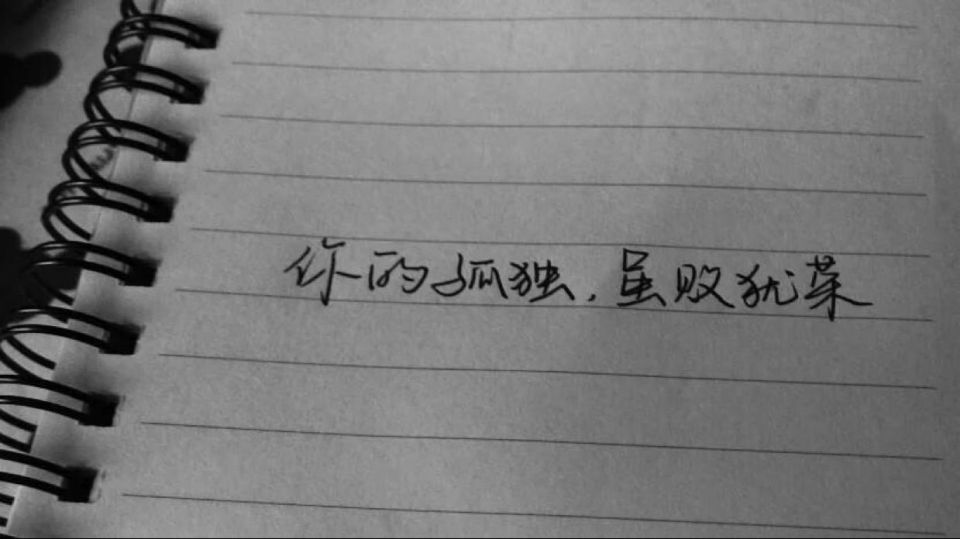 你的孤独，虽败犹荣